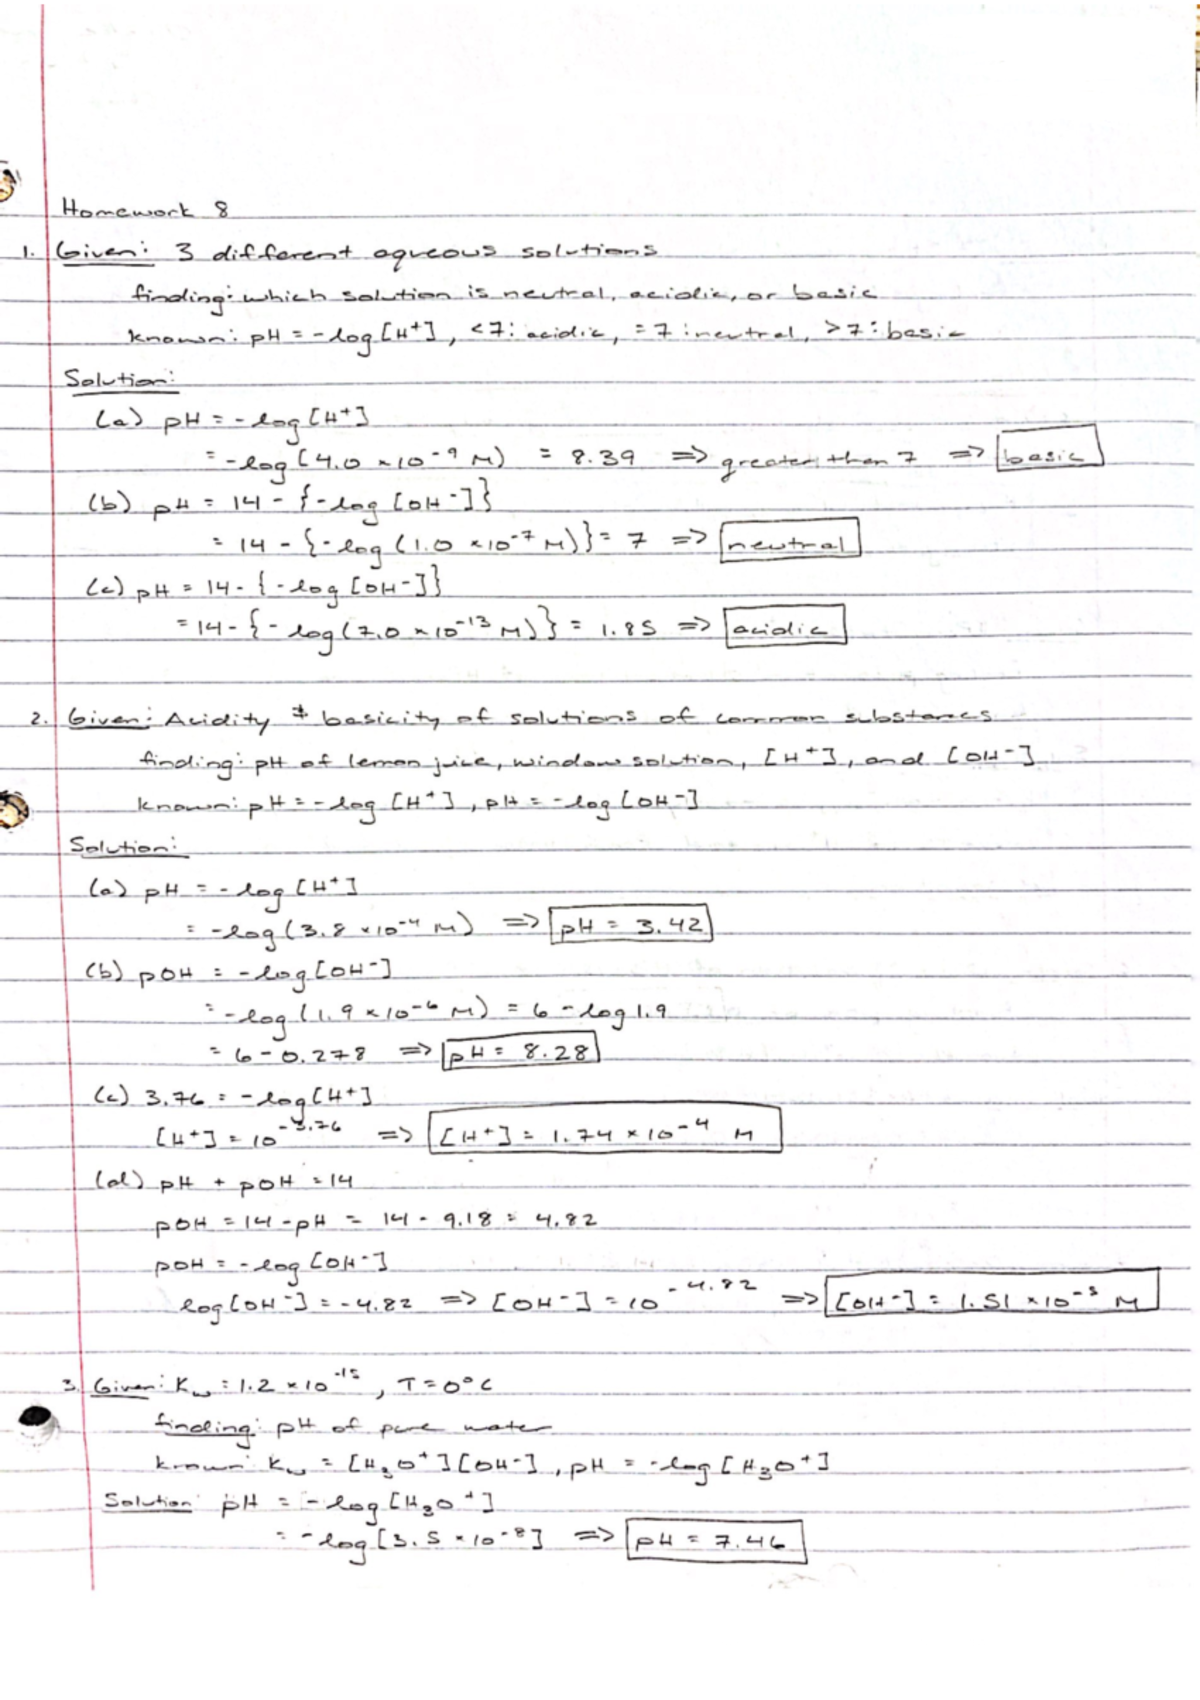 Homework 8
1. Given: 3 different aqueous solutions
finding: which solution is neutral, acidic, or basic
known: pH = -log [H⁺], <7: acidic, =7: neutral, >7: basic
Solution:
(a) pH = -log [H⁺]
= -log (4.0 × 10⁻⁹ M) = 8.39 => greater than 7 => basic
(b) pH = 14 - {-log [OH⁻]}
= 14 - {-log (1.0 × 10⁻⁷ M)} = 7 => neutral
(c) pH = 14 - {-log [OH⁻]}
= 14 - {-log (7.0 × 10⁻¹³ M)} = 1.85 => acidic
2. Given: Acidity & basicity of solutions of common substances
finding: pH of lemon juice, window solution, [H⁺], and [OH⁻]
known: pH = -log [H⁺], pH = -log [OH⁻]
Solution:
(a) pH = -log [H⁺]
= -log (3.8 × 10⁻⁴ M) => pH = 3.42
(b) pOH = -log [OH⁻]
= -log (1.9 × 10⁻⁶ M) = 6 - log 1.9
= 6 - 0.278 => pH = 8.28
(c) 3.76 = -log [H⁺]
[H⁺] = 10⁻³·⁷⁶ => [H⁺] = 1.74 × 10⁻⁴ M
(d) pH + pOH = 14
pOH = 14 - pH = 14 - 9.18 = 4.82
pOH = -log [OH⁻]
log [OH⁻] = -4.82 => [OH⁻] = 10⁻⁴·⁸² => [OH⁻] = 1.51 × 10⁻⁵ M
3. Given: Kw = 1.2 × 10⁻¹⁵, T = 0°C
finding: pH of pure water
known: Kw = [H₃O⁺][OH⁻], pH = -log [H₃O⁺]
Solution: pH = -log [H₃O⁺]
= -log [3.5 × 10⁻⁸] => pH = 7.46